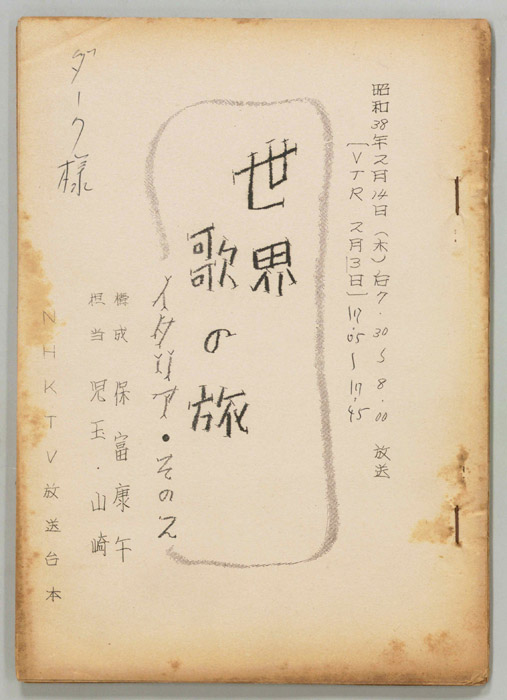 昭和38年2月14日（木）后7.30〜8.00 放送
［VTR 2月13日］17.05〜17.45
世界
歌の旅
イタリア・その2
構成 保富康午
担当 児玉・山崎
NHKTV放送台本
ダーク様